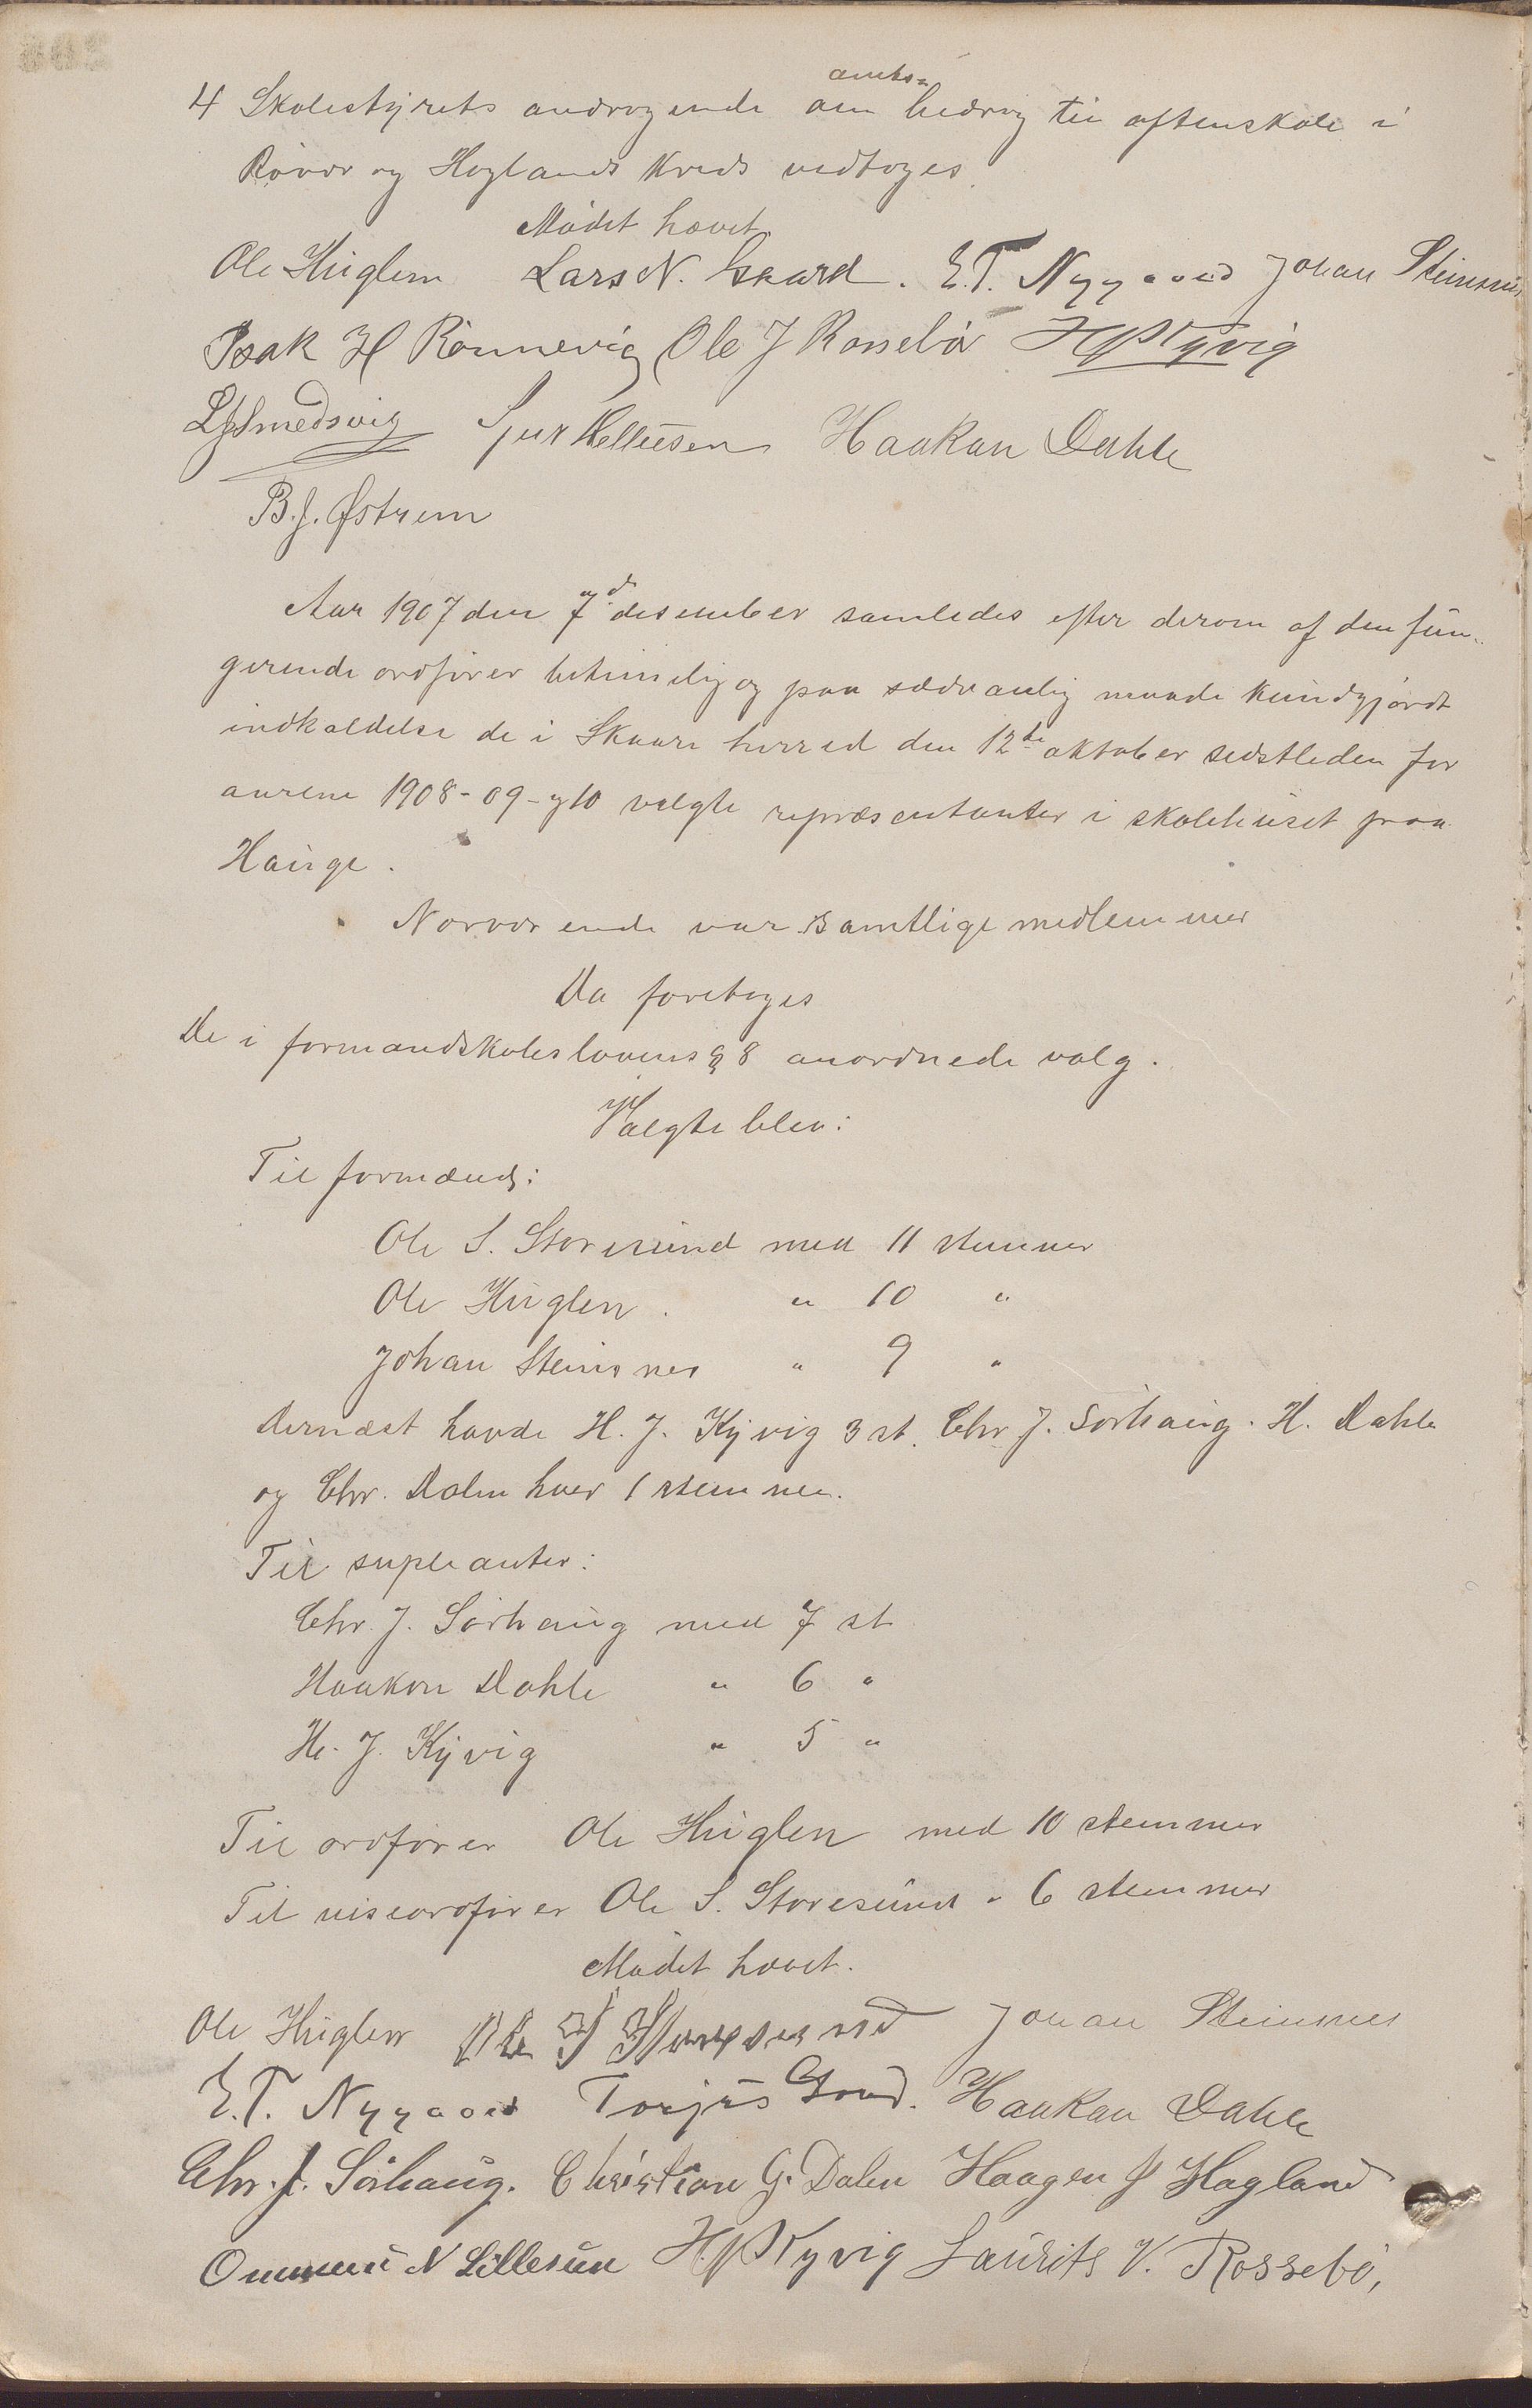 4 Skolestyrets andragende om amts-bidrag til aftenskole i
Røvær og Haglands kreds vedtoges.
Mødet hævet.
Ole Huglen Lars N. Gaard. E.T. Nygaard Johan Steinsnes
Isak H Rønnevig Ole J Rossebø H J Kyvig
L J Smedsvig Sjur Hellesen Haakon Dahle
B.J. Østrem
Aar 1907 den 7de desember samledes efter derom af den fun-
gerende ordfører betimelig og paa sædvanlig maade kundgjordt
indkaldelse de i Skaare herred den 12te oktober sidstleden for
aarene 1908-09-og 10 valgte repræsentanter i skolehuset paa
Hauge.
Nærværende var samtlige medlemmer
Da foretoges
De i formandskabslovens § 8 anordnede valg.
Valgte blev:
Til formænd:
Ole S. Storesund med 11 stemmer
Ole Huglen. " 10 "
Johan Steinsnes " 9 "
Dernæst havde H. J. Kyvig 3 st. Chr J. Sørhaug. H. Dahle
og Chr. Dalen hver 1 stemme.
Til supleanter:
Chr. J. Sørhaug med 7 st
Haakon Dahle " 6 "
H. J. Kyvig " 5 "
Til ordfører Ole Huglen med 10 stemmer
Til viseordfører Ole S. Storesund " 6 stemmer
Mødet hævet.
Ole Huglen Ole S Storesund Johan Steinsnes
E.T. Nygaard Torjus Haakon Dahle
Chr. J. Sørhaug. Christian G. Dalen Haagen J Hagland
Ommund N Lillesun H J Kyvig Laurits V. Rossebø,